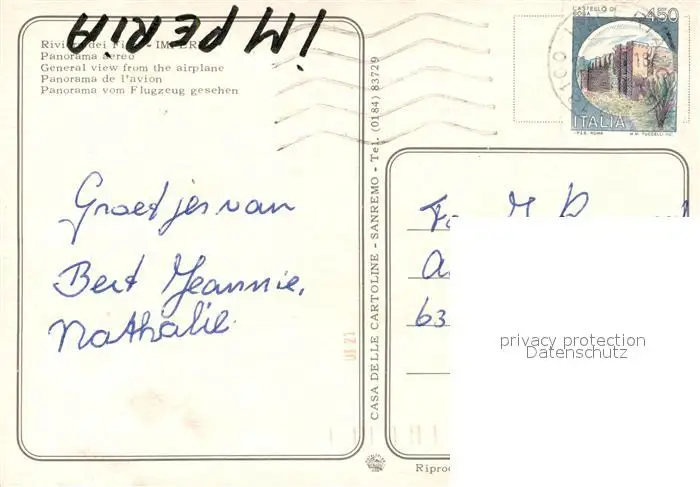 IMPERIA
Riviera dei Fiori - IMPERIA
Panorama aereo
General view from the airplane
Panorama de l'avion
Panorama vom Flugzeug gesehen
Groetjes van
Bert Jeannie,
Nathalie
CASA DELLE CARTOLINE - SANREMO - Tel. (0184) 83729
CASTELLO DI
BOSA
450
ITALIA
I.P.Z.S. ROMA
M.M. TUCCELLI INC.
Fa
63
privacy protection
Datenschutz